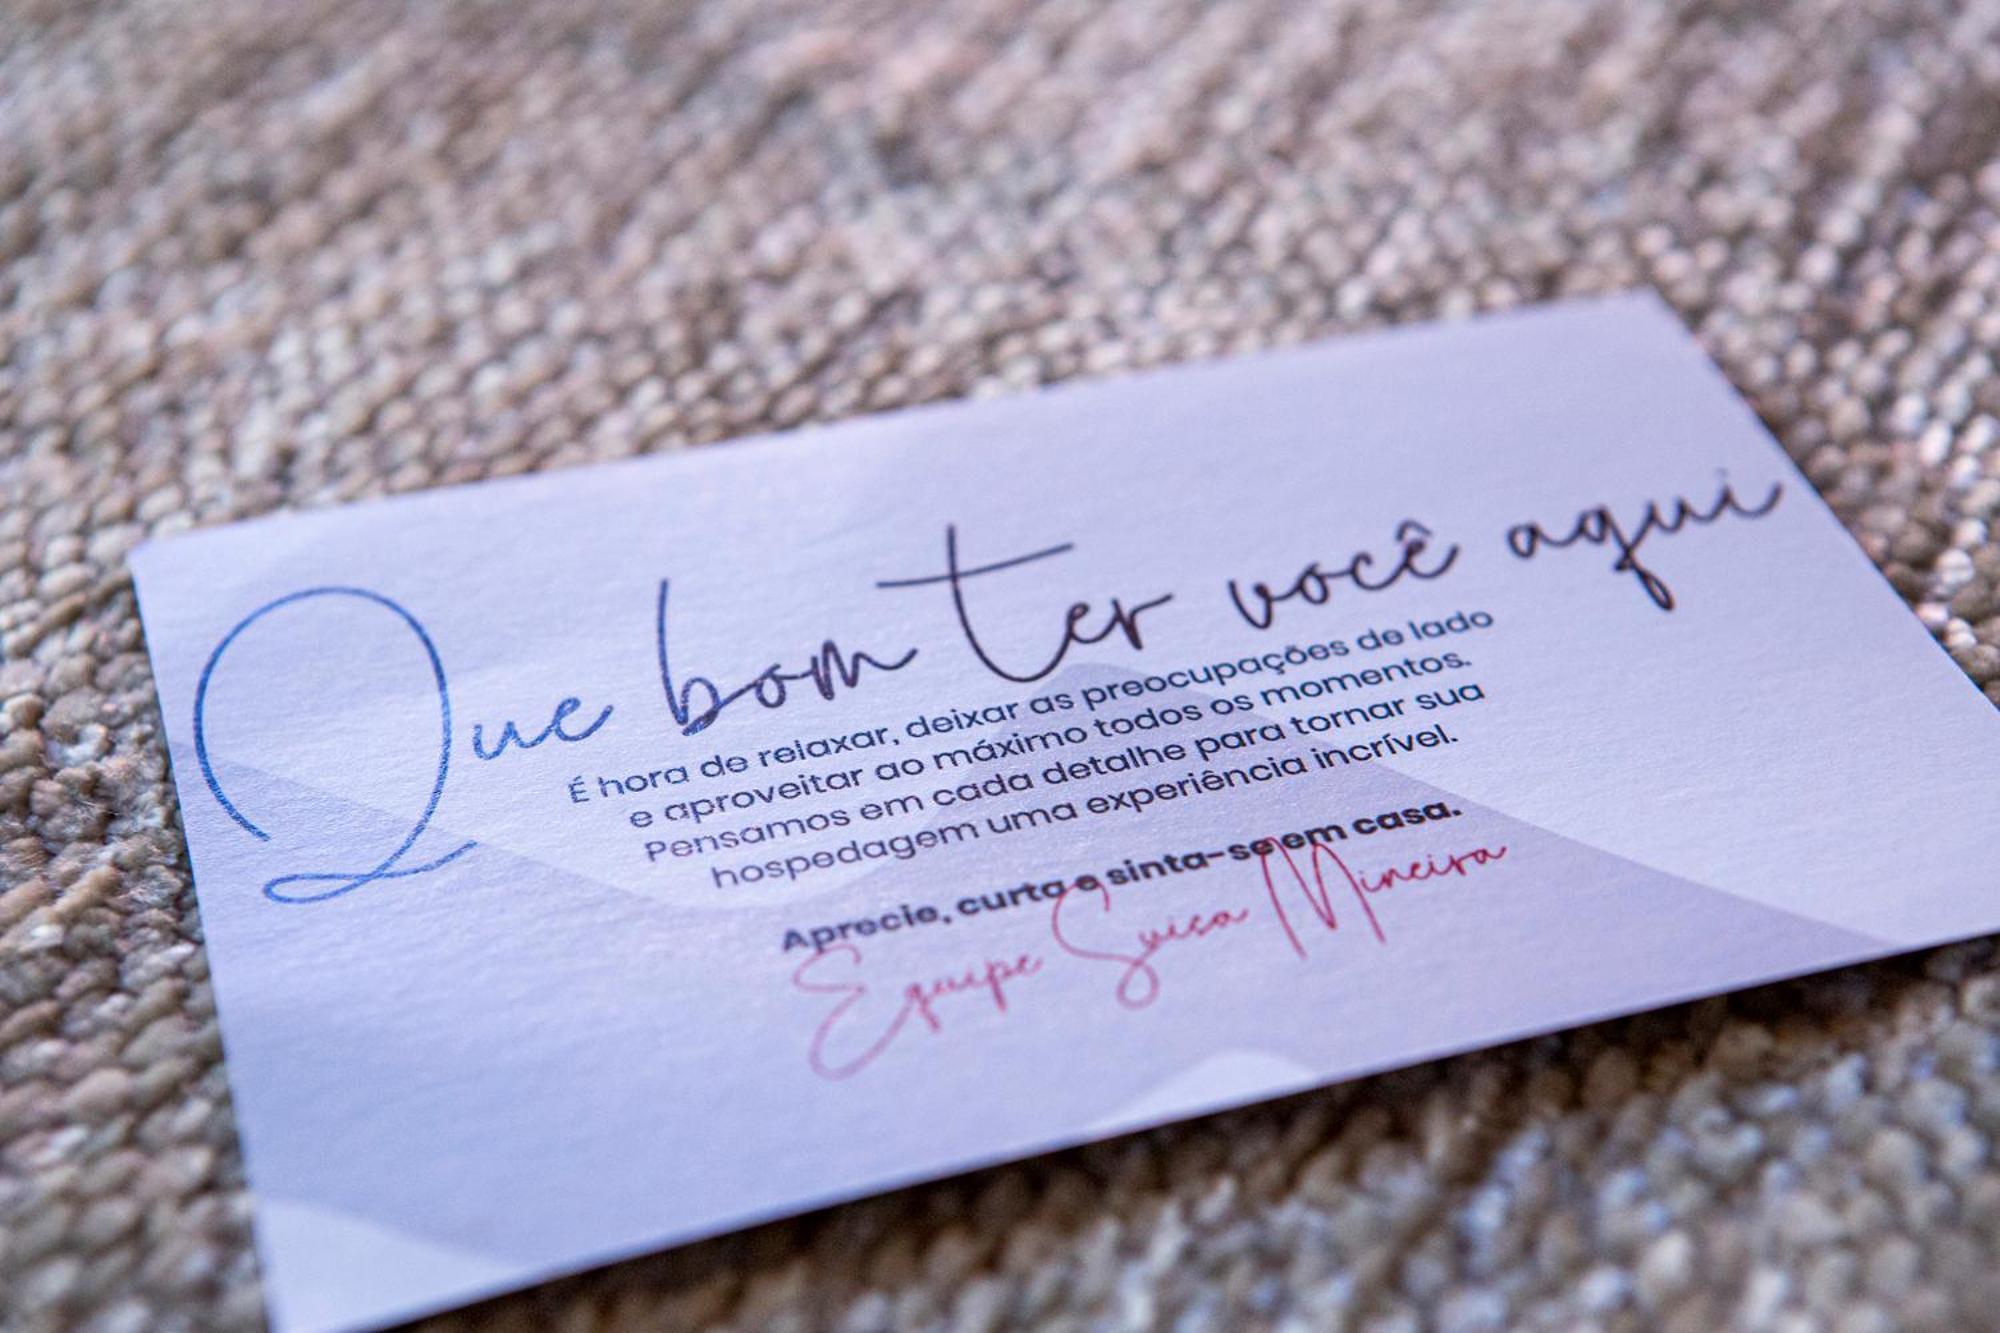 Que bom ter você aqui
É hora de relaxar, deixar as preocupações de lado
e aproveitar ao máximo todos os momentos.
Pensamos em cada detalhe para tornar sua
hospedagem uma experiência incrível.
Aprecie, curta e sinta-se em casa.
Equipe Suíça Mineira